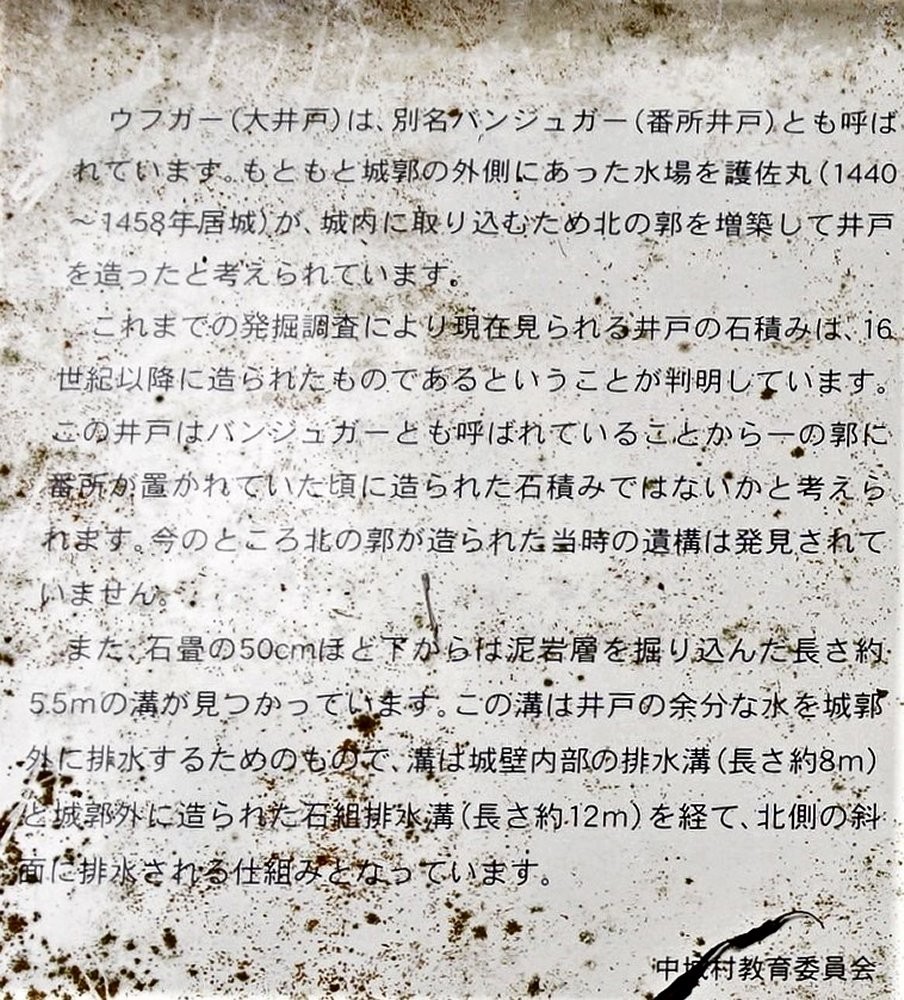 ウフガー(大井戸)は、別名バンジュガー(番所井戸)とも呼ば
れています。もともと城郭の外側にあった水場を護佐丸(1440
～1458年居城)が、城内に取り込むため北の郭を増築して井戸
を造ったと考えられています。
これまでの発掘調査により現在見られる井戸の石積みは、16
世紀以降に造られたものであるということが判明しています。
この井戸はバンジュガーとも呼ばれていることから一の郭に
番所が置かれていた頃に造られた石積みではないかと考えら
れます。今のところ北の郭が造られた当時の遺構は発見されて
いません。
また、石畳の50cmほど下からは泥岩層を掘り込んだ長さ約
5.5mの溝が見つかっています。この溝は井戸の余分な水を城郭
外に排水するためのもので、溝は城壁内部の排水溝(長さ約8m)
と城郭外に造られた石組排水溝(長さ約12m)を経て、北側の斜
面に排水される仕組みとなっています。
中城村教育委員会